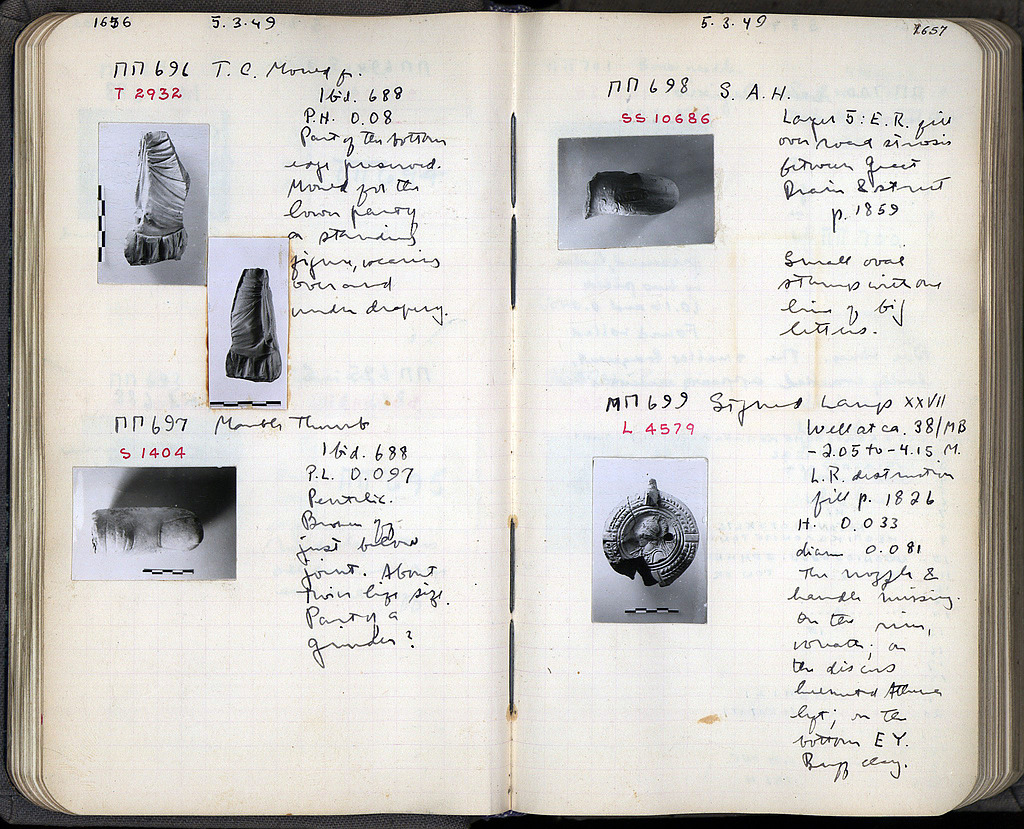 1656 5.3.49
ΠΠ 696 T.C. Mould fr.
T 2932
Ibid. 688
P.H. 0.08
Part of the bottom
edge preserved.
Mould for the
lower part of
a standing
figure, wearing
over and
under drapery.
ΠΠ 697 Marble Thumb
S 1404
Ibid. 688
P.L. 0.097
Pentelic.
Broken off
just below
joint. About
twice life size.
Part of a
grinder?
5.3.49 1657
ΠΠ 698 S.A.H.
SS 10686
Layer 5: E.R. fill
over road strosis
between Great
Drain & street
p. 1859
Small oval
stamp with one
line of big
letters.
ΠΠ 699 Signed Lamp XXVII
L 4579
Well at ca. 38/MB
-2.05 to -4.15 M.
L.R. destruction
fill p. 1826
H. 0.033
diam 0.081
The nozzle &
handle missing.
On the rim,
on
the discus
helmeted Athena
left; on the
bottom EY.
Buff clay.